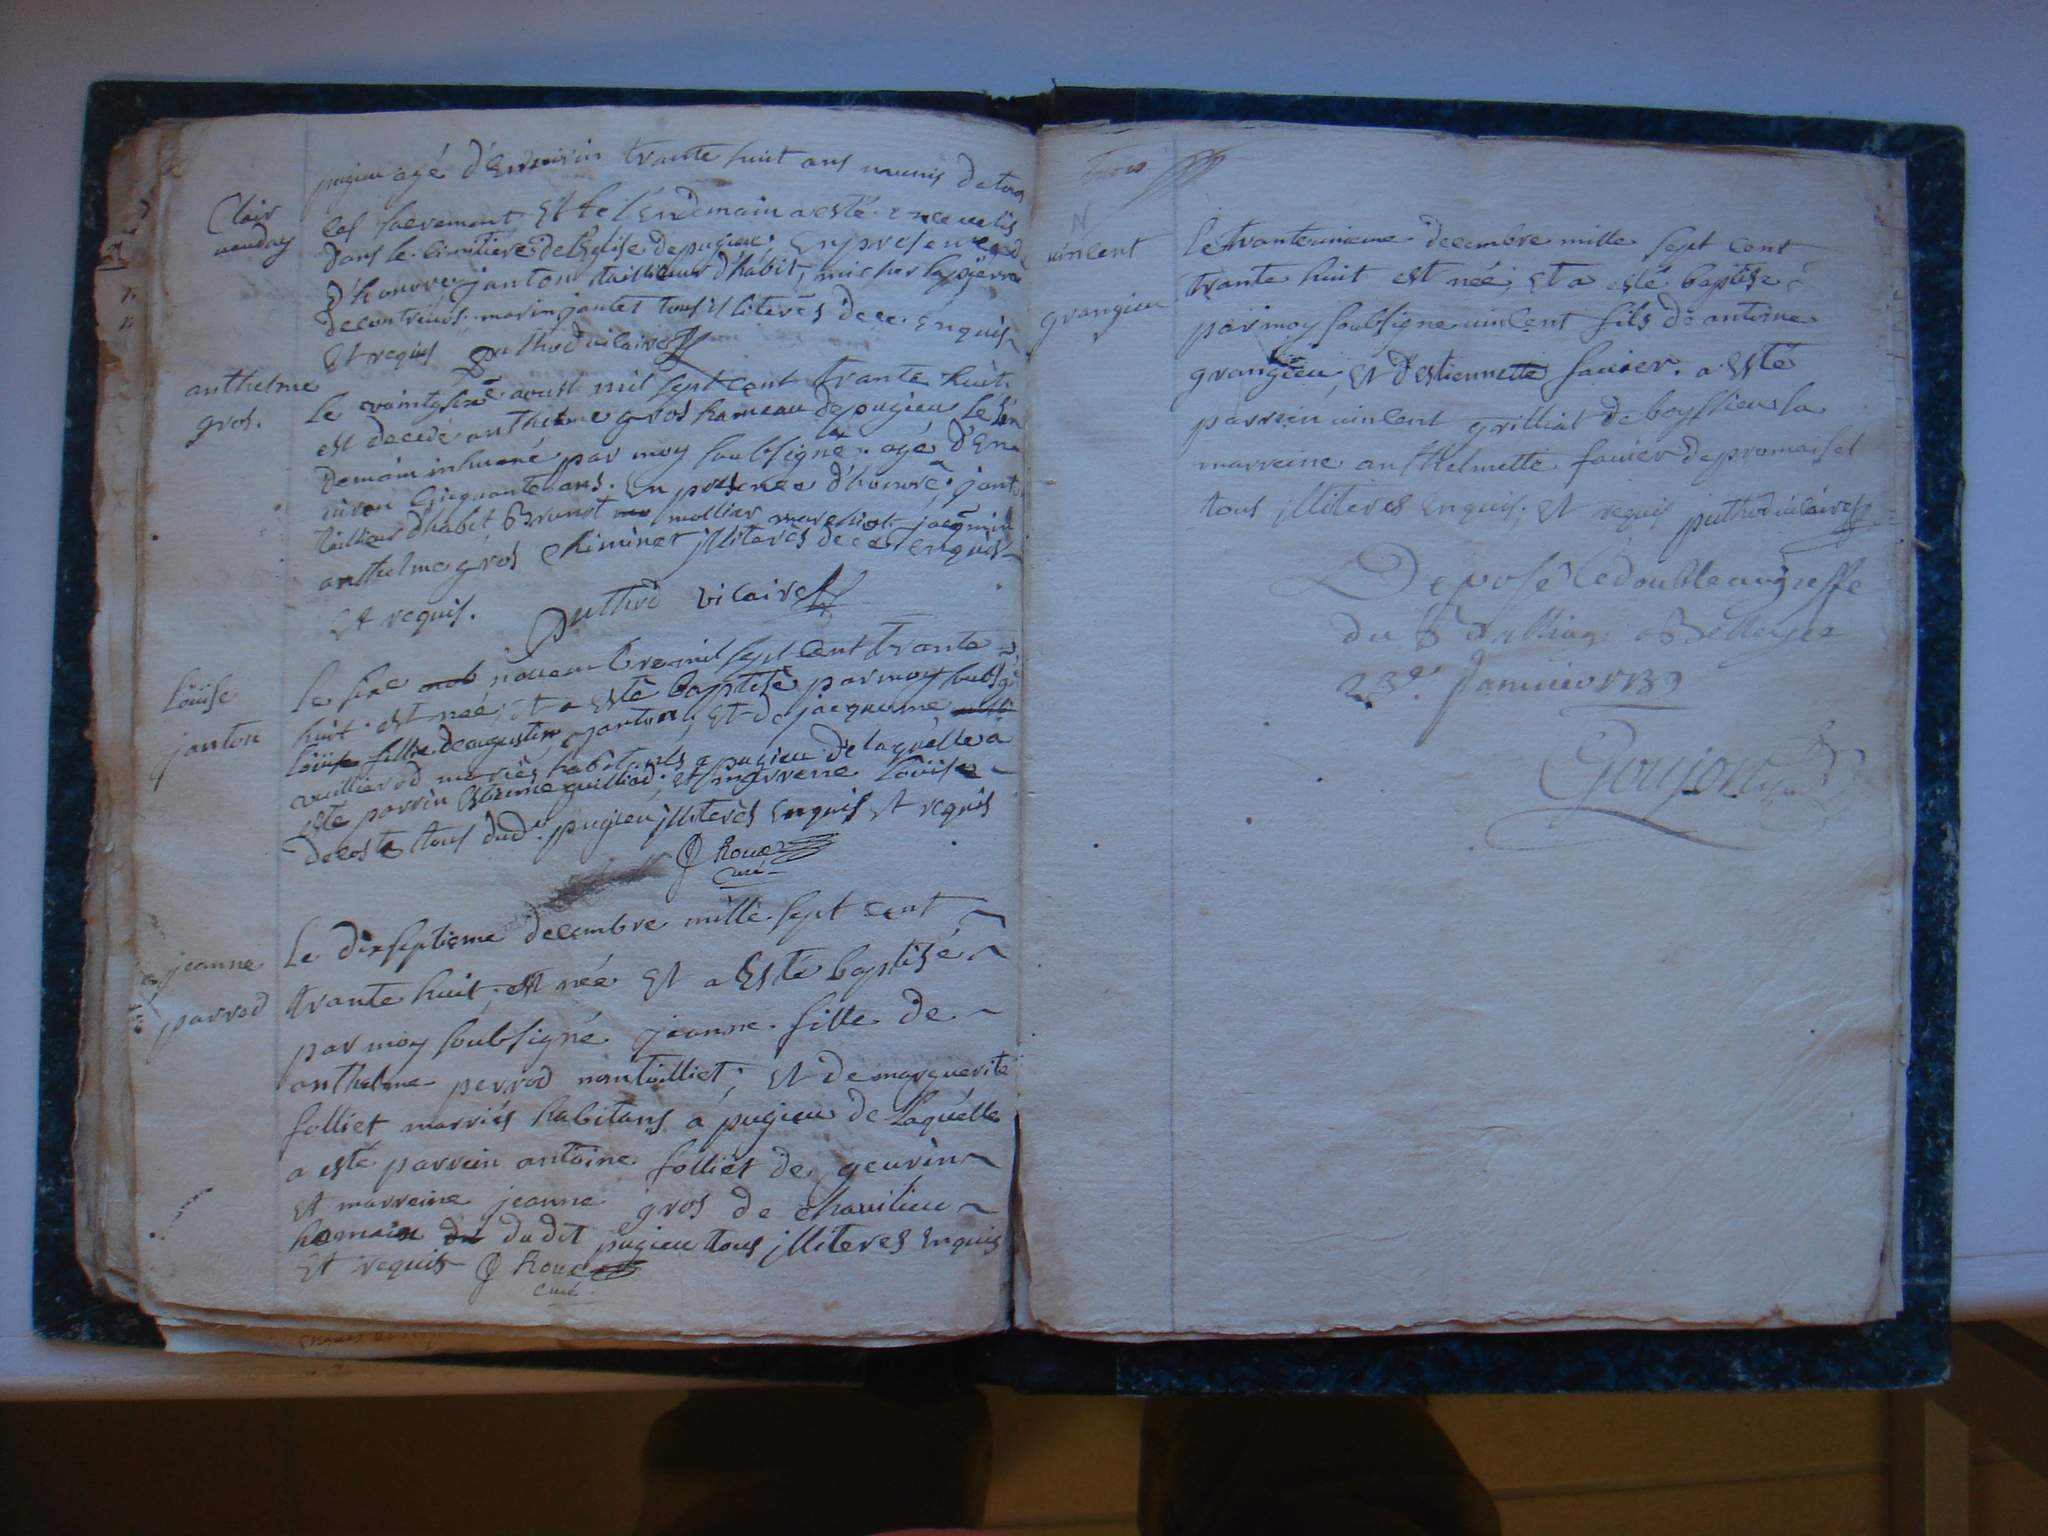 pugieu agé d'Environ trante huit ans munis de tous
Clair
les sacrement Et le l'Endemain a esté encevelis
dans le cimitiere de l'Eglise de pugieu; En presence d
d'honoré janton taillieur d'habit,
marin jantet tous illiterés de ce Enquis
Et requis puthod vicaire
anthelme
gros.
Le vaintsixe aoust mil sept cent trante huit
est decedé anthelme gros hameau de pugieu le len
demain inhumé par moy soubsigné. agé d'En
viron cinquante ans. En presence d'honoré jant
taillieur d'habit,
anthelme gros illiterés de ce Enquis
Et requis. puthod vicaire
Loüise
janton
Le sixe nob novembre mil sept cent trante
huit. est née; et a esté baptisé par moy soubsigé
Loüise fillie de augustin janton; Et de jacqueme
vuillierod mariés habitants a pugieu de laquelle à
esté parrin Estienne vuilliod; Et marrene Loüise
decosta tous dud. pugieu illiterés Enquis Et requis
Roux
curé
jeanne
parrod
Le dixseptieme decembre mille sept cent
trante huit; est née Et a Esté baptisé
par moy soubsigné jeanne fille de
anthelme perrod nantoilliet; Et de marguerite
folliet marriés habitans à pugieu de Laquelle
a esté parrein antoine folliet de geurin
Et marreine jeanne gros de chavilieu
hamain du dudit pugieu tous illiteres Enquis
Et requis Roux
curé
N
vincent
grangieu
Le trante unieme decembre mille sept cent
trante huit est née; Et a esté baptisé
par moy soubsigne vincent fils de antoine
grangieu Et d'estiennette favier. a Esté
parrein vincent grilliat de boyssieu la
marreine anthelmette favier de promaisel
tous illiteres Enquis; Et requis puthod vicaire
Deposé Le double au greffe
du Balliage de Belley ce
23e. Janvier 1739
Goujon